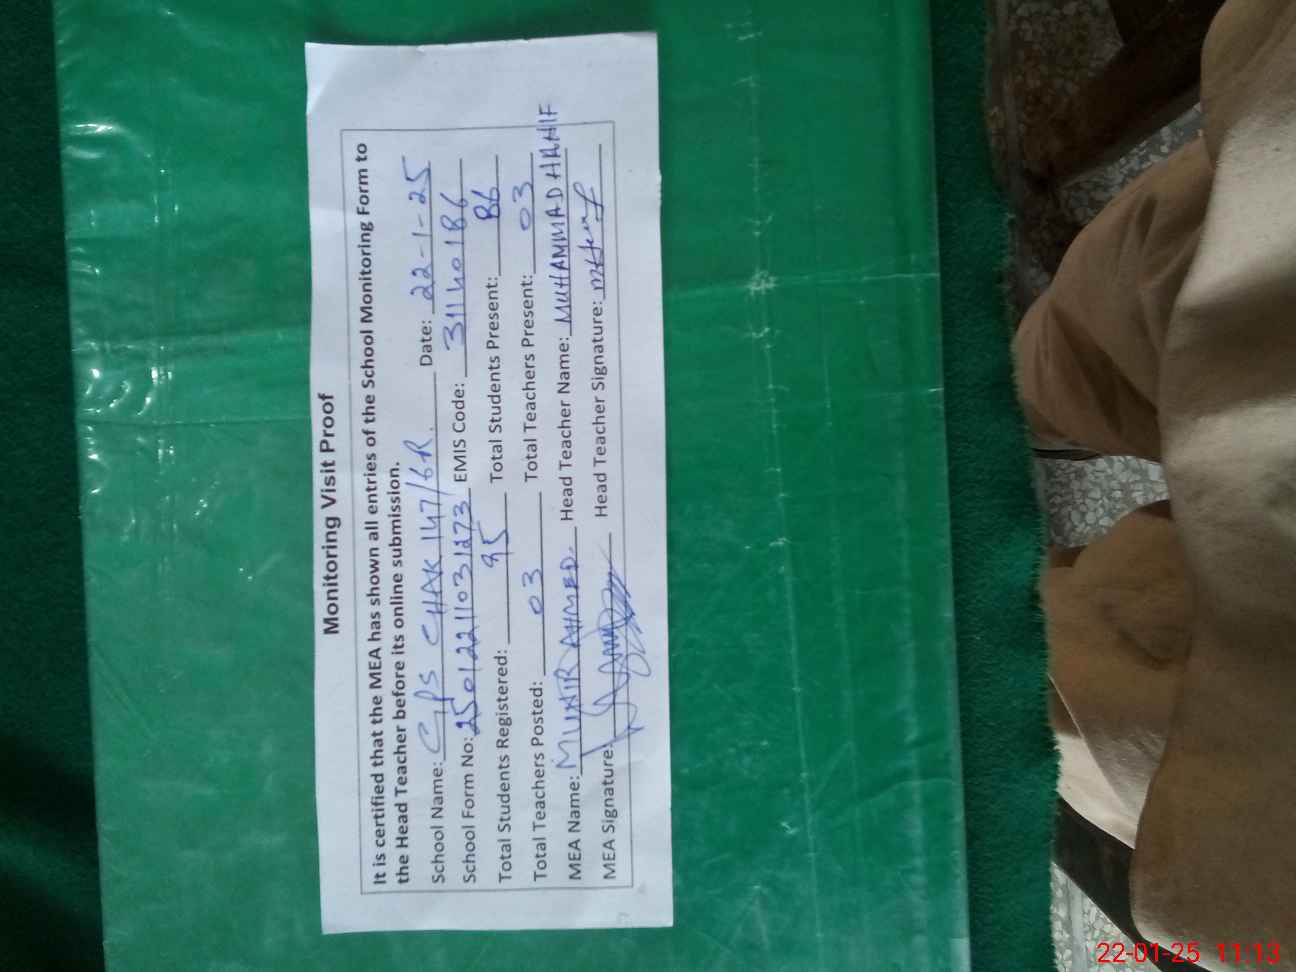 Monitoring Visit Proof
It is certified that the MEA has shown all entries of the School Monitoring Form to
the Head Teacher before its online submission.
School Name: GPS CHAK 147/6R. Date: 22-1-25
School Form No: 25012211031273 EMIS Code: 31140186
Total Students Registered: 95 Total Students Present: 86
Total Teachers Posted: 03 Total Teachers Present: 03
MEA Name: MUNIR AHMED. Head Teacher Name: MUHAMMAD HANIF
MEA Signature: Head Teacher Signature:
22-01-25 11:13